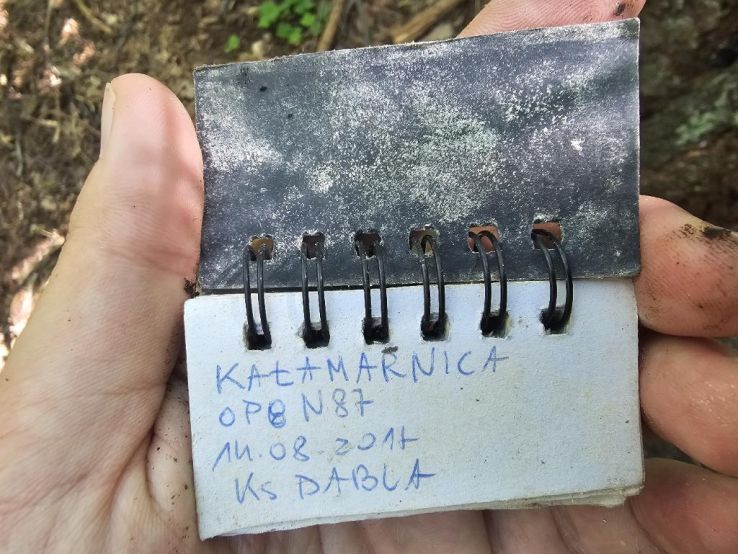 KAŁAMARNICA
OP8 N87
14.08 2017
Ks DABLA